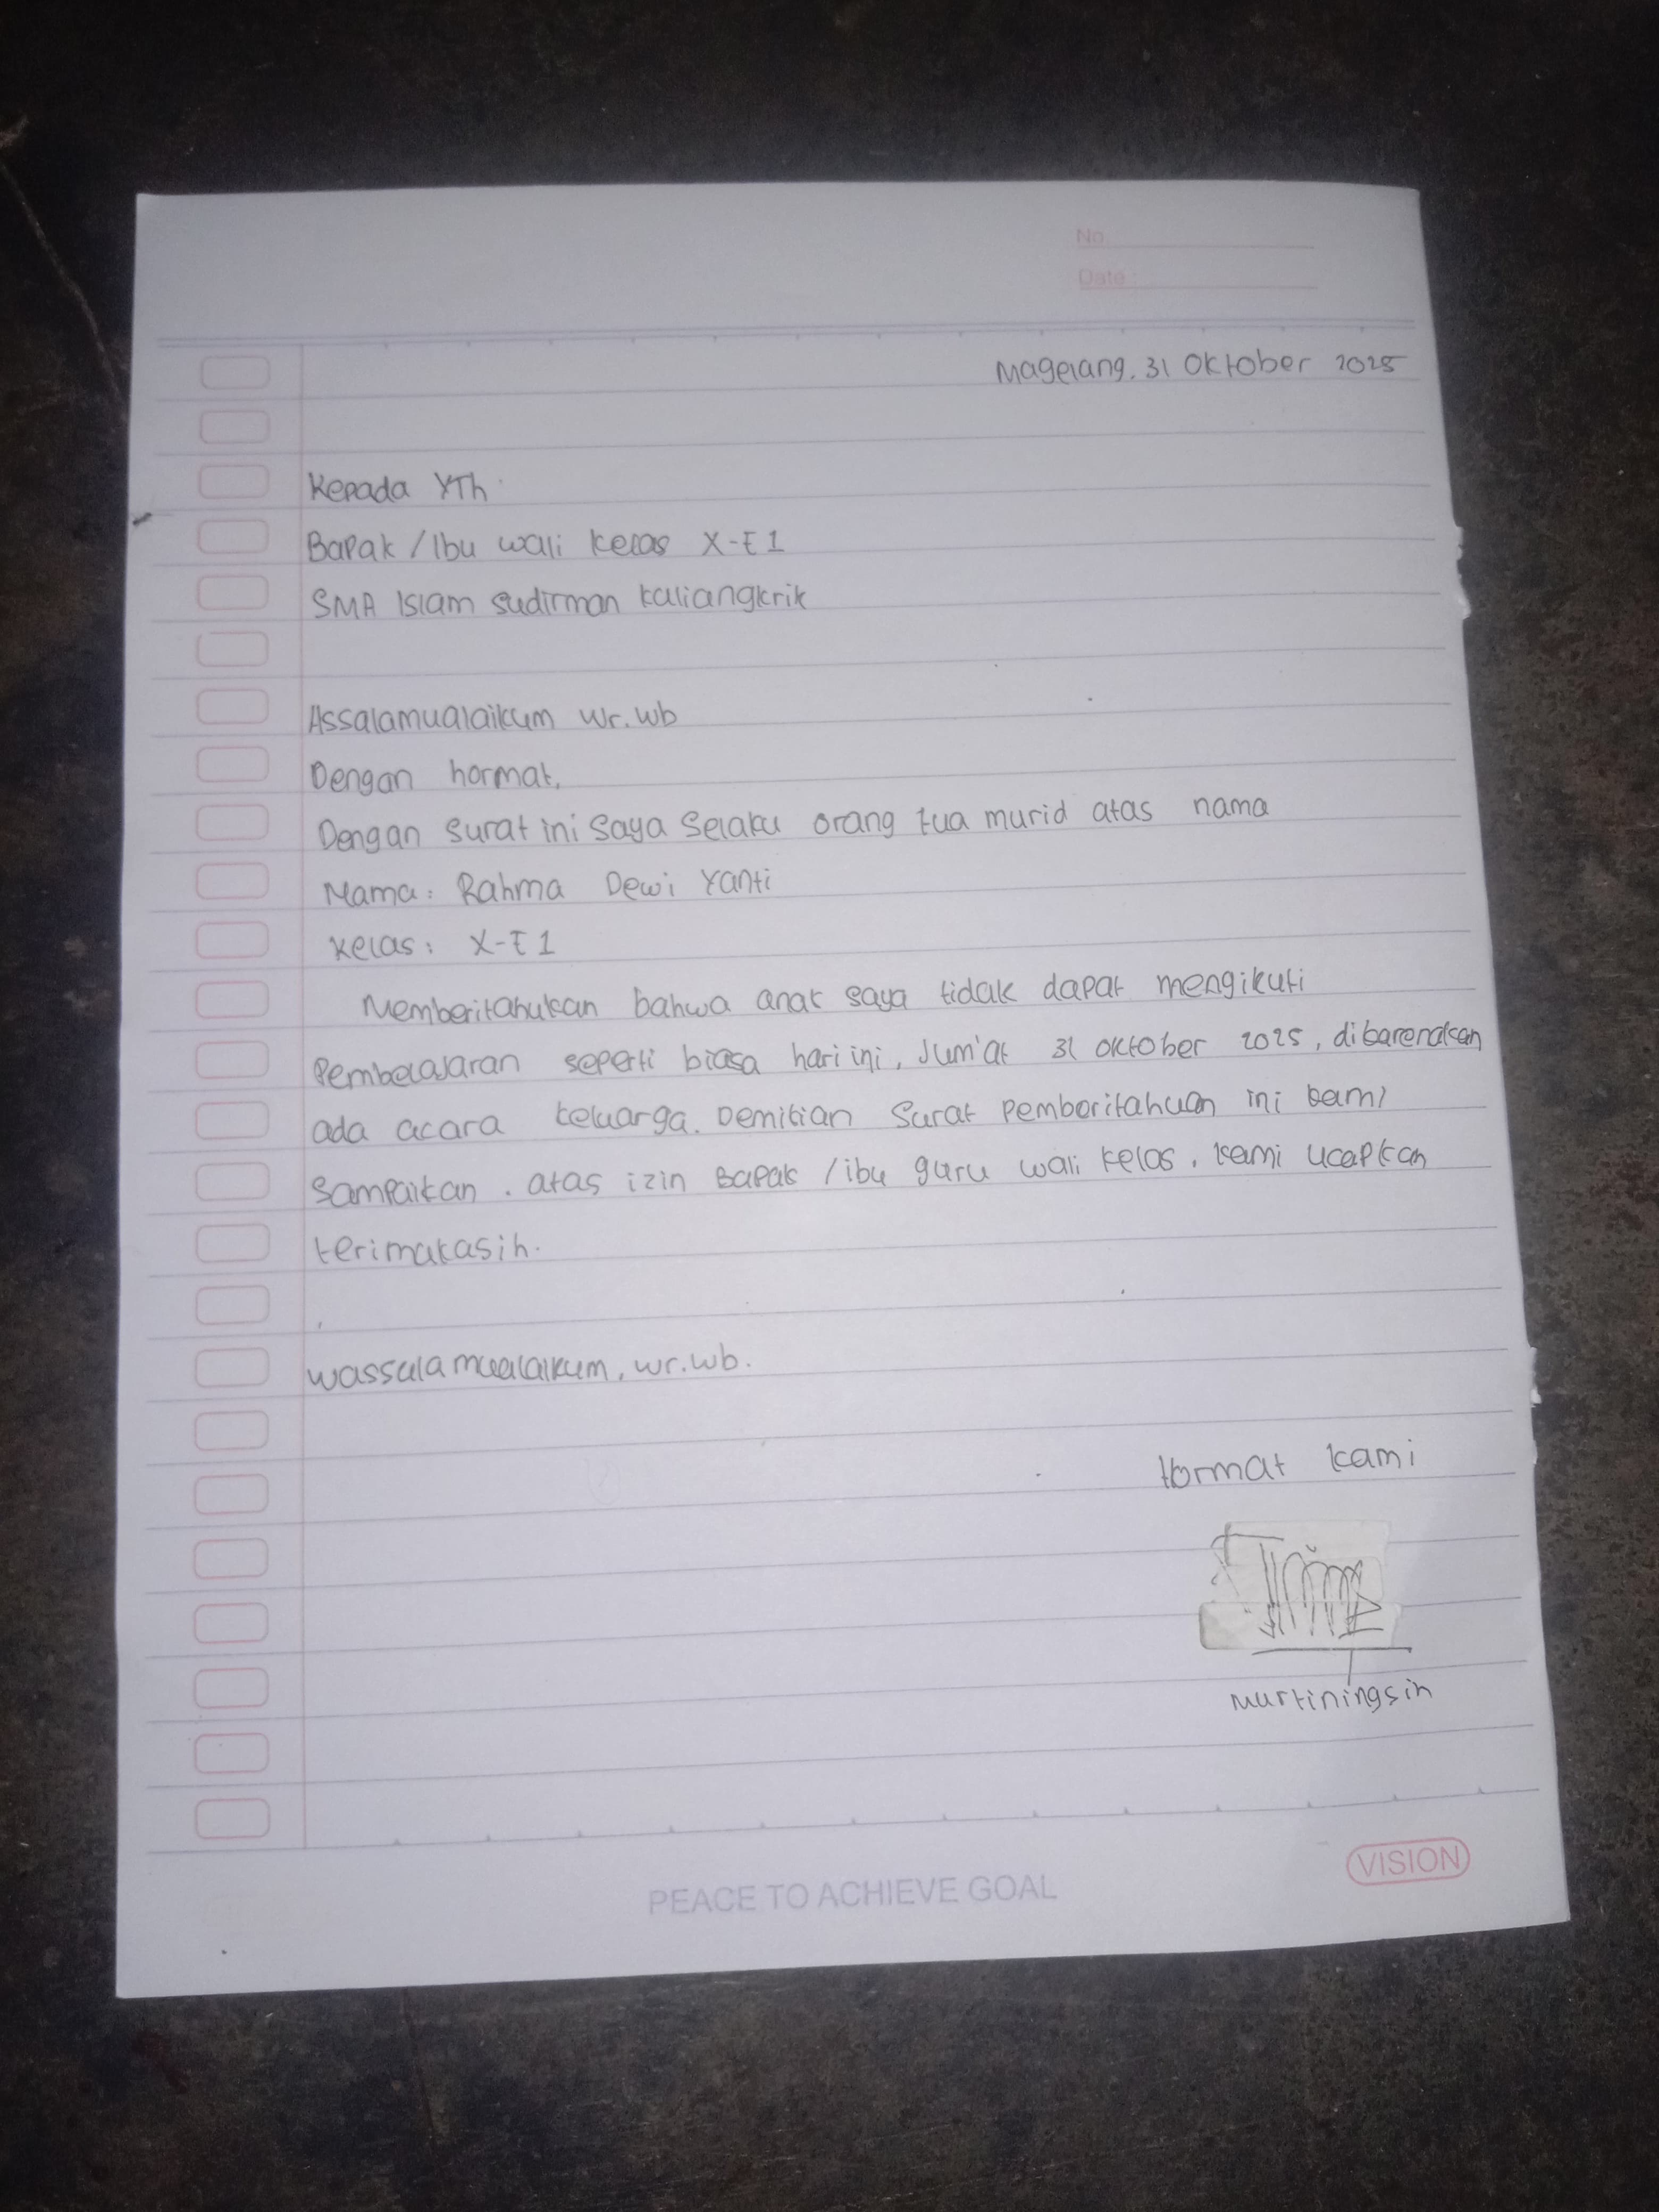 No
Date
Magelang, 31 Oktober 2025
Kepada YTh.
Bapak / Ibu wali kelas X-E1
SMA Islam sudirman kaliangkrik
Assalamualaikum wr.wb
Dengan hormat,
Dengan surat ini saya selaku orang tua murid atas nama
Nama: Rahma Dewi Yanti
Kelas: X-E1
Memberitahukan bahwa anak saya tidak dapat mengikuti
Pembelajaran seperti biasa hari ini, Jum'at 31 Oktober 2025, dikarenakan
ada acara keluarga. Demikian surat pemberitahuan ini kami
sampaikan. atas izin Bapak /ibu guru wali kelas, kami ucapkan
terimakasih.
wassalamualaikum, wr.wb.
Hormat kami
Murtiningsih
PEACE TO ACHIEVE GOAL
VISION